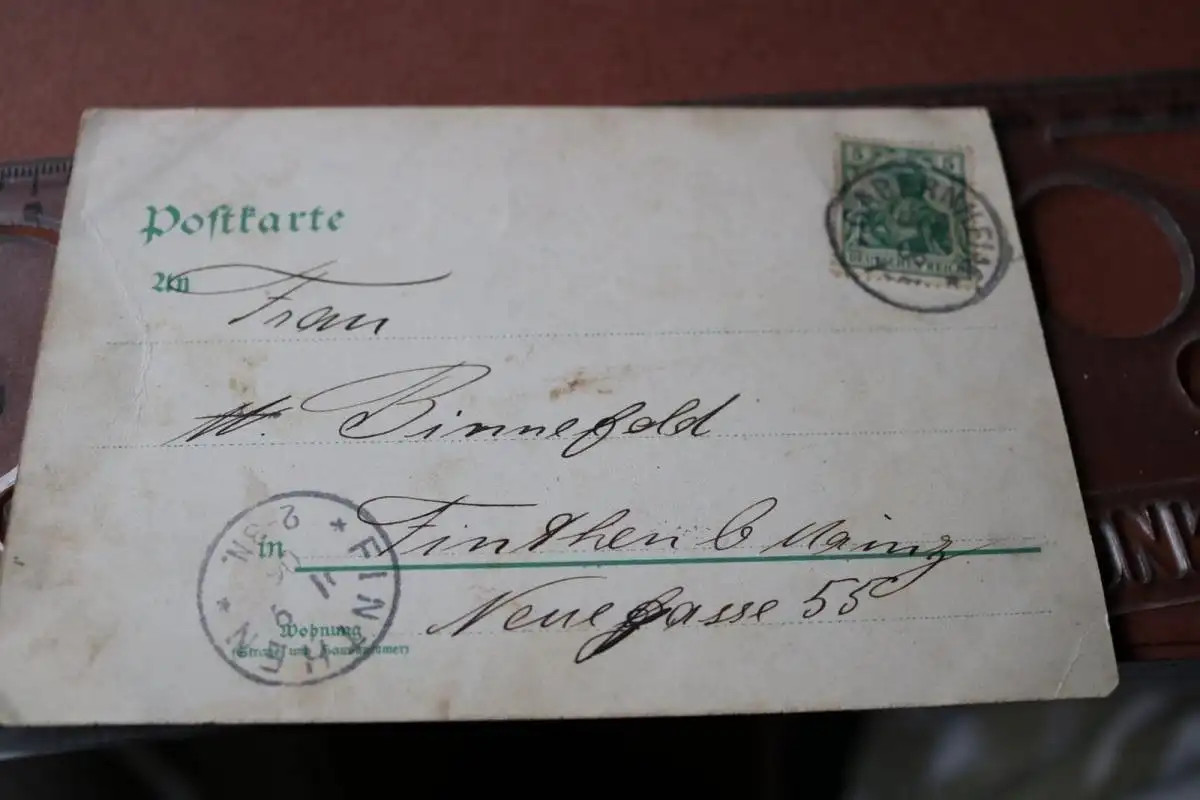 Postkarte
5 5
DEUTSCHES REICH
An
Frau
W. Binnefeld
in Finthen b Mainz
Neuegasse 55
Wohnung
(Straße und Hausnummer)
FINTHEN